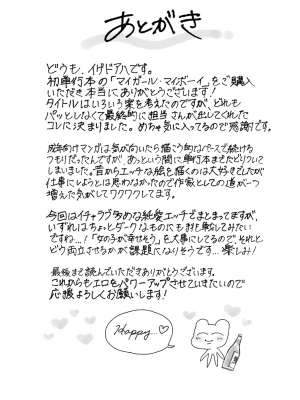 あとがき
どうも、イゲドアハです。
初単行本の「マイガール・マイボーイ」をご購入
いただき本当にありがとうございます!
タイトルはいろいろ案を考えたのですが、どれも
パッとしなくて最終的に担当さんが出してくれた
コレに決まりました。めちゃ気に入ってるので感謝です。
成年向けマンガは気が向いたら描く的なペースで続ける
つもりだったんですが、あっという間に単行本までたどりついて
しまいました。昔からエッチな絵を描くのは大好きでしたが
仕事にしようとは思わなかったので作家としての道が一つ
増えた気がしてワクワクしてます。
今回はイチャラブ多めな純愛エッチでまとまってますが、
いずれはちょっとダークなものにも挑戦してみたい
ですね…!「女の子が幸せそう」も大事にしてるので、それと
どう両立させるかが課題になりそうです…楽しみ!
最後まで読んでいただきありがとうございます。
これからもエロをパワーアップさせていきたいので
応援よろしくお願いします!
Happy...♡